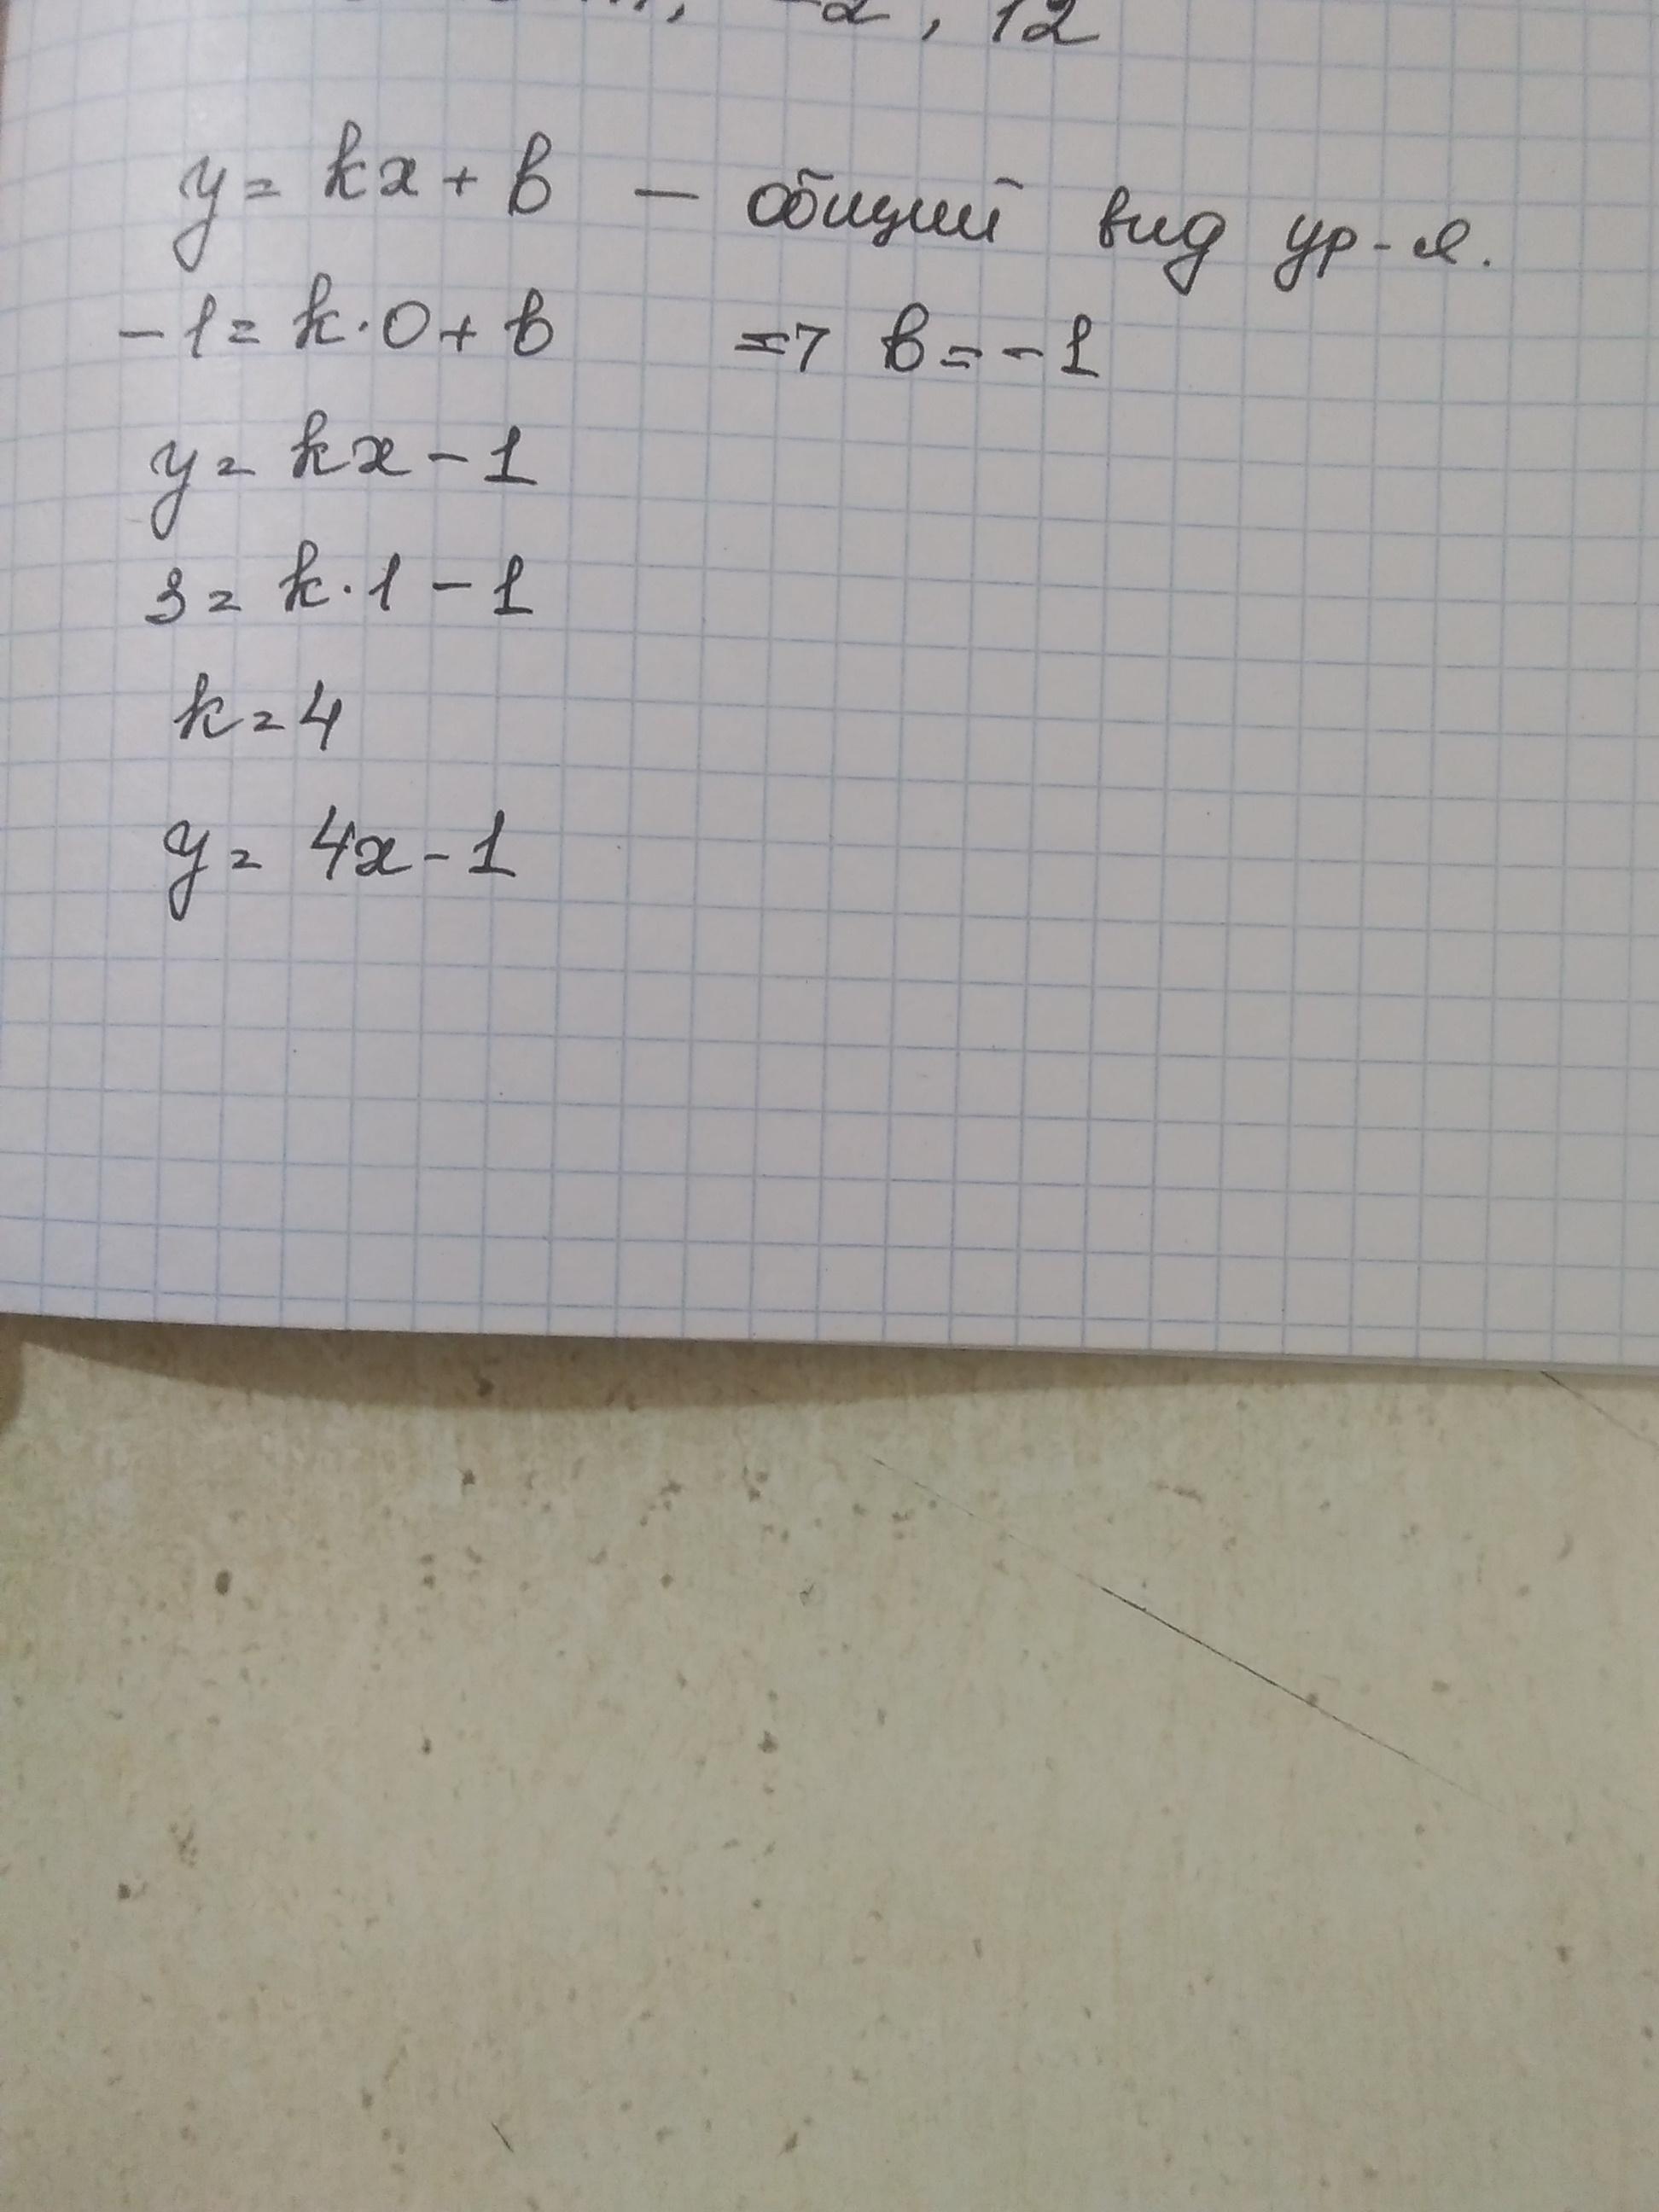 -2, 12
y = kx + b — общий вид ур-я.
-1 = k·0 + b => b = -1
y = kx - 1
3 = k·1 - 1
k = 4
y = 4x - 1